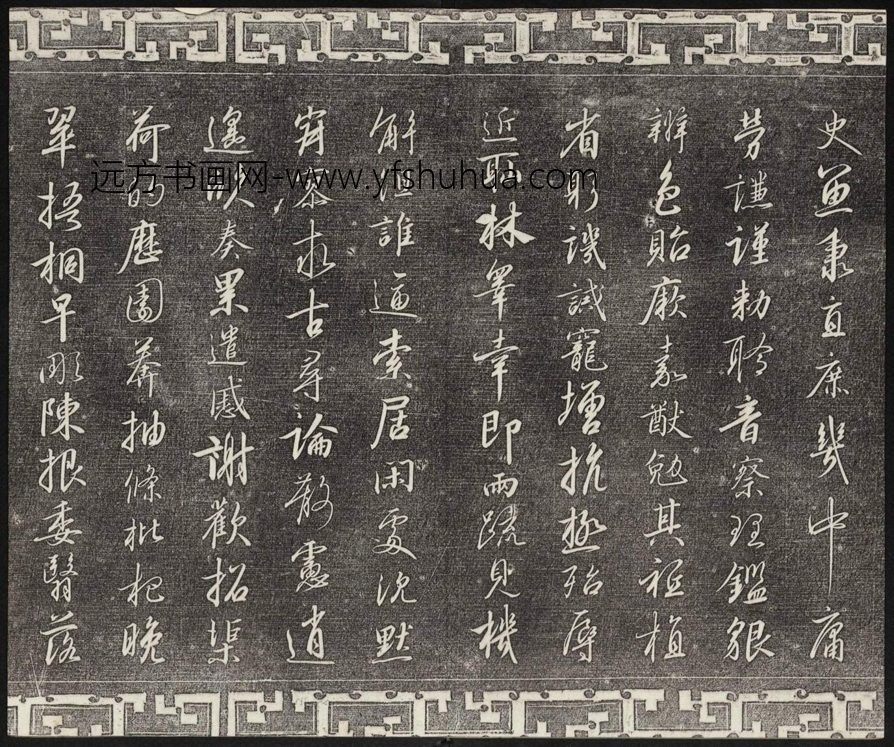 史魚秉直庶幾中庸
勞謙謹勑聆音察理鑑貌
辨色貽厥嘉猷勉其祗植
省躬譏誡寵增抗極殆辱
近恥林皋幸即兩疏見機
解組誰逼索居閑處沈默
寂寥求古尋論散慮逍
遙欣奏累遣慼謝歡招渠
荷的歷園莽抽條枇杷晚
翠梧桐早彫陳根委翳落
远方书画网-www.yfshuhua.com